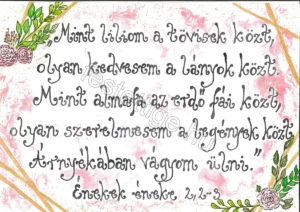 „Mint liliom a tövisek közt,
olyan kedvesem a lányok közt.
Mint almafa az erdő fái közt,
olyan szerelmesem a legények közt.
Árnyékában vágyom ülni."
Énekek éneke 2,2-3